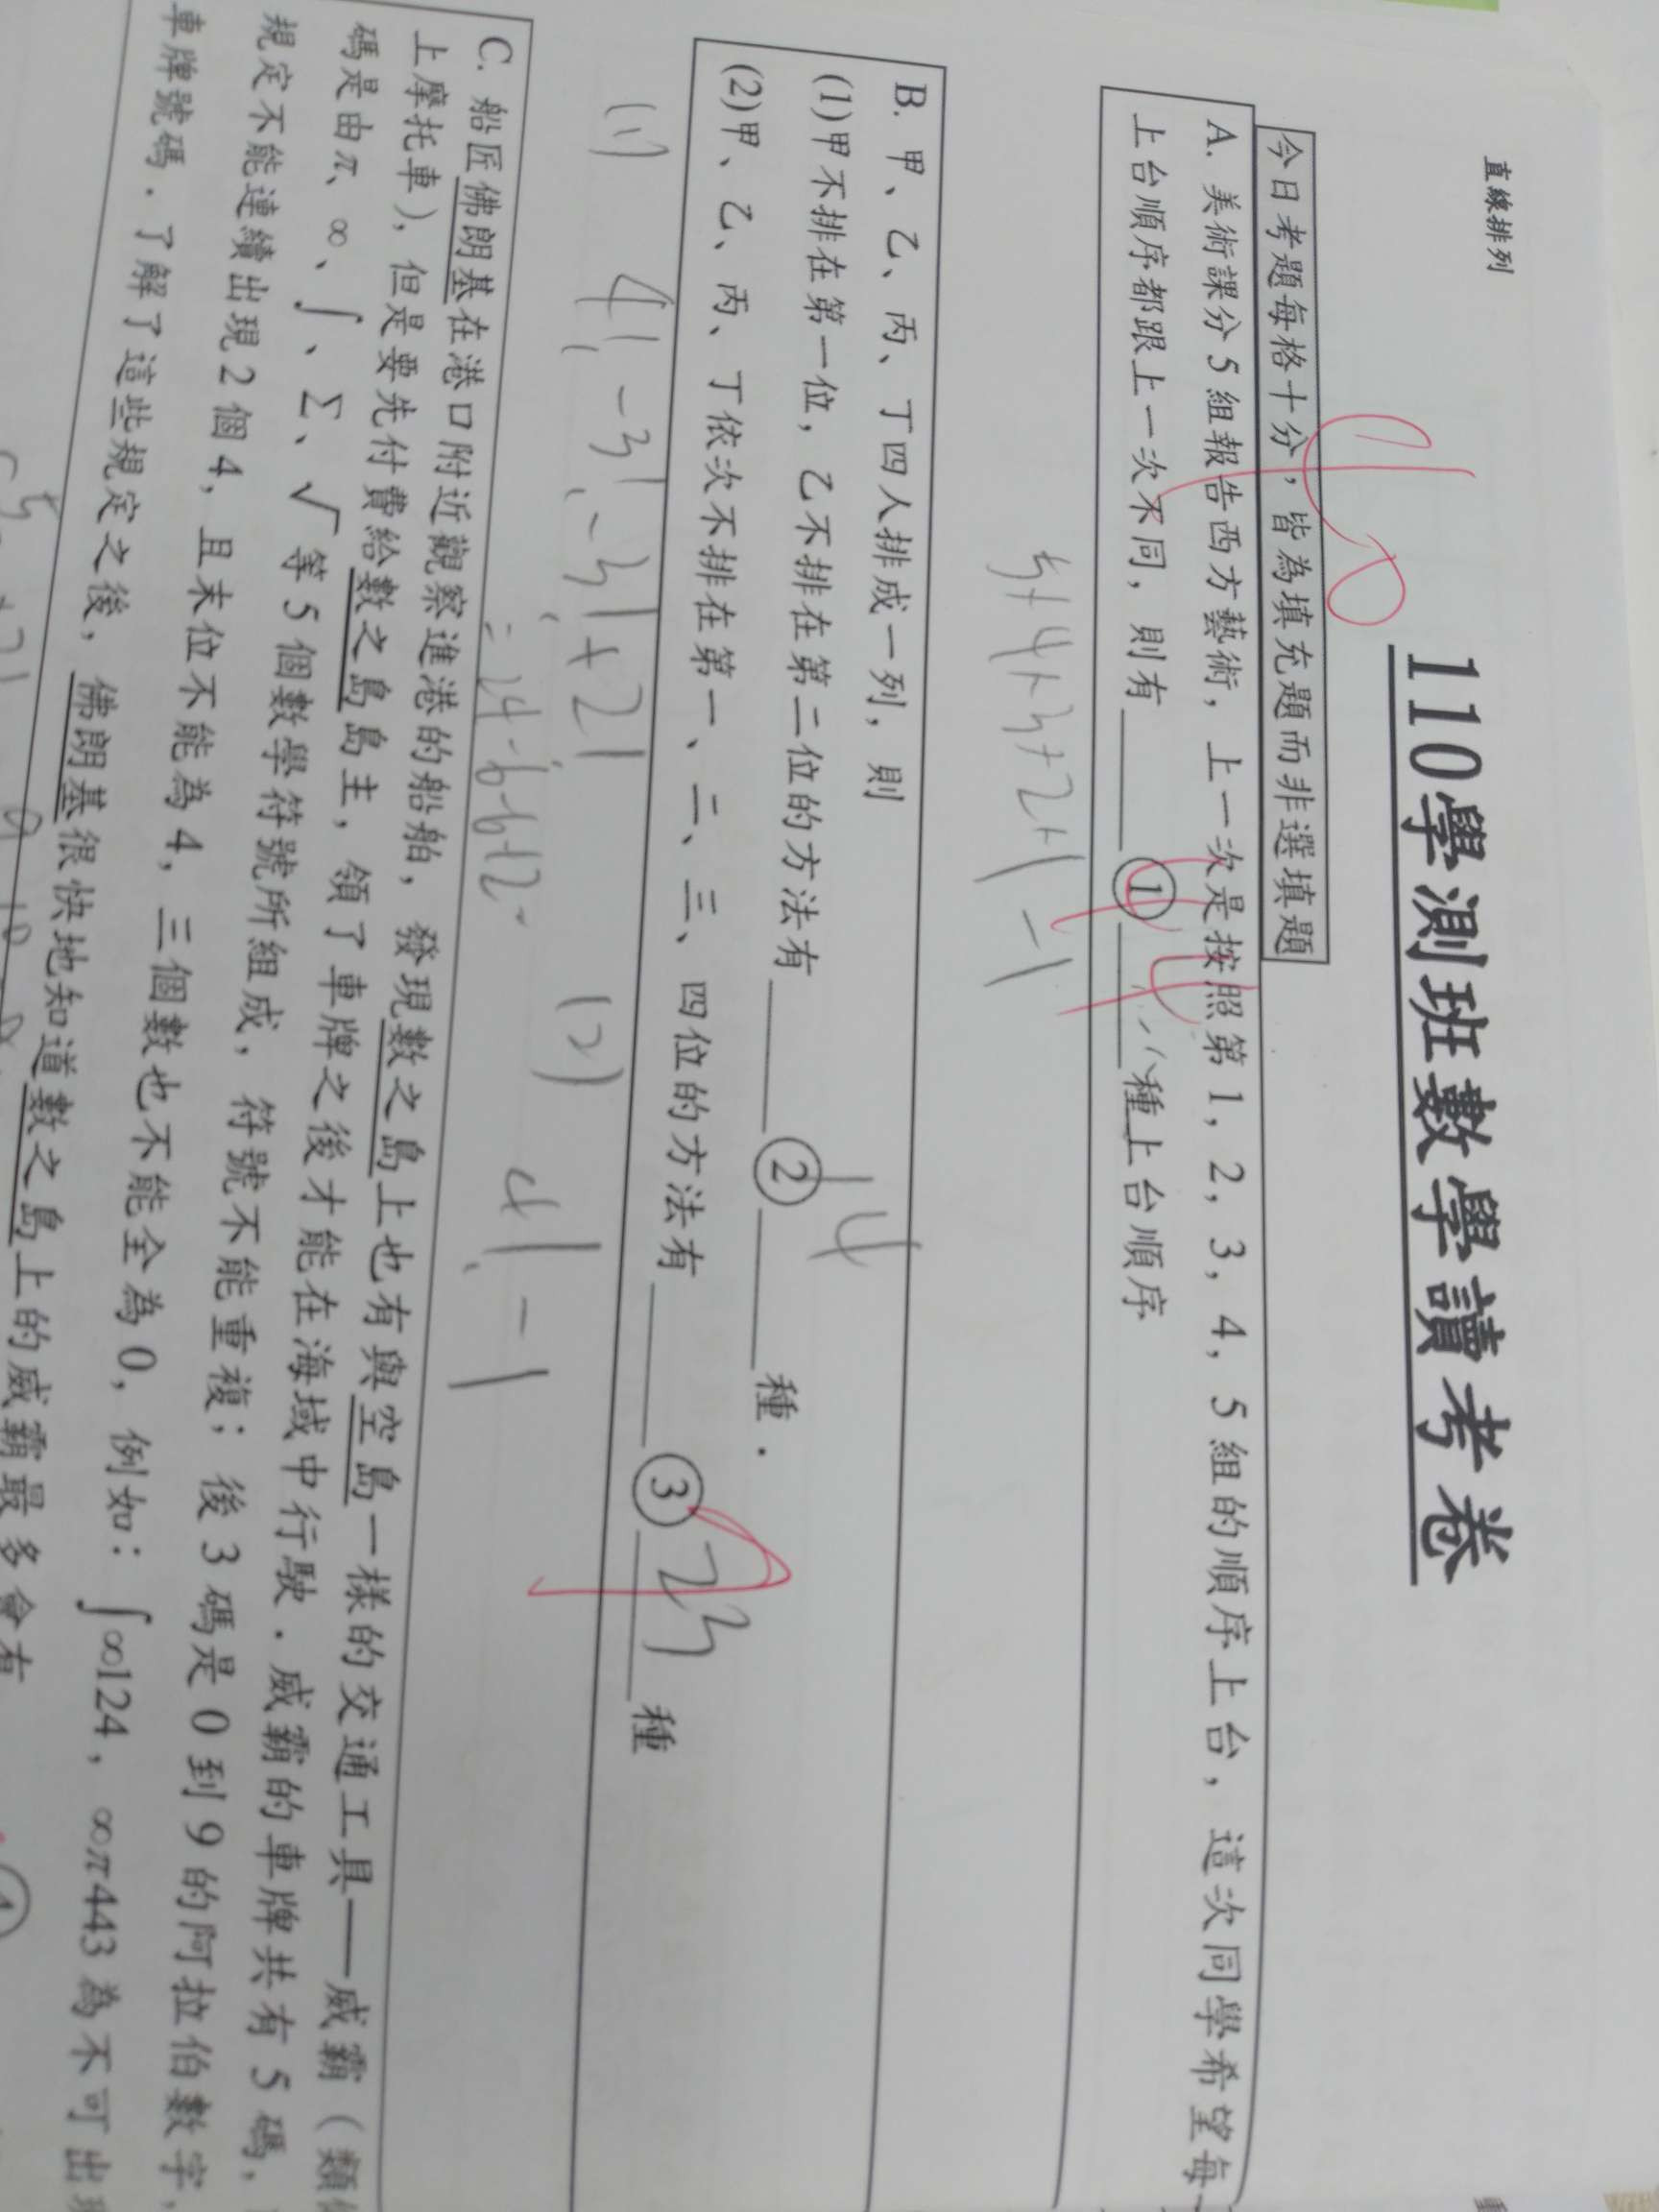 直線排列
110學測班數學讀考卷
今日考題每格十分，皆為填充題而非選填題
A. 美術課分 5 組報告西方藝術，上一次是按照第 1，2，3，4，5 組的順序上台，這次同學希望每
上台順序都跟上一次不同，則有 ① 44 種上台順序
5+4+3+2+1-1
B. 甲、乙、丙、丁四人排成一列，則
(1)甲不排在第一位，乙不排在第二位的方法有 ② 14 種．
(2)甲、乙、丙、丁依次不排在第一、二、三、四位的方法有 ③ 23 種
(1) 4!-3!-3!+2!
=24-6-6+2=
(2) 4!-1
C. 船匠佛朗基在港口附近觀察進港的船舶，發現數之島上也有與空島一樣的交通工具──威霸（類似
上摩托車），但是要先付費給數之島島主，領了車牌之後才能在海域中行駛．威霸的車牌共有 5 碼，
碼是由π、∞、∫、Σ、√ 等 5 個數學符號所組成，符號不能重複；後 3 碼是 0 到 9 的阿拉伯數字，
規定不能連續出現 2 個 4，且末位不能為 4，三個數也不能全為 0，例如：∫∞124，∞π443 為不可出現
車牌號碼．了解了這些規定之後，佛朗基很快地知道數之島上的威霸最多會有